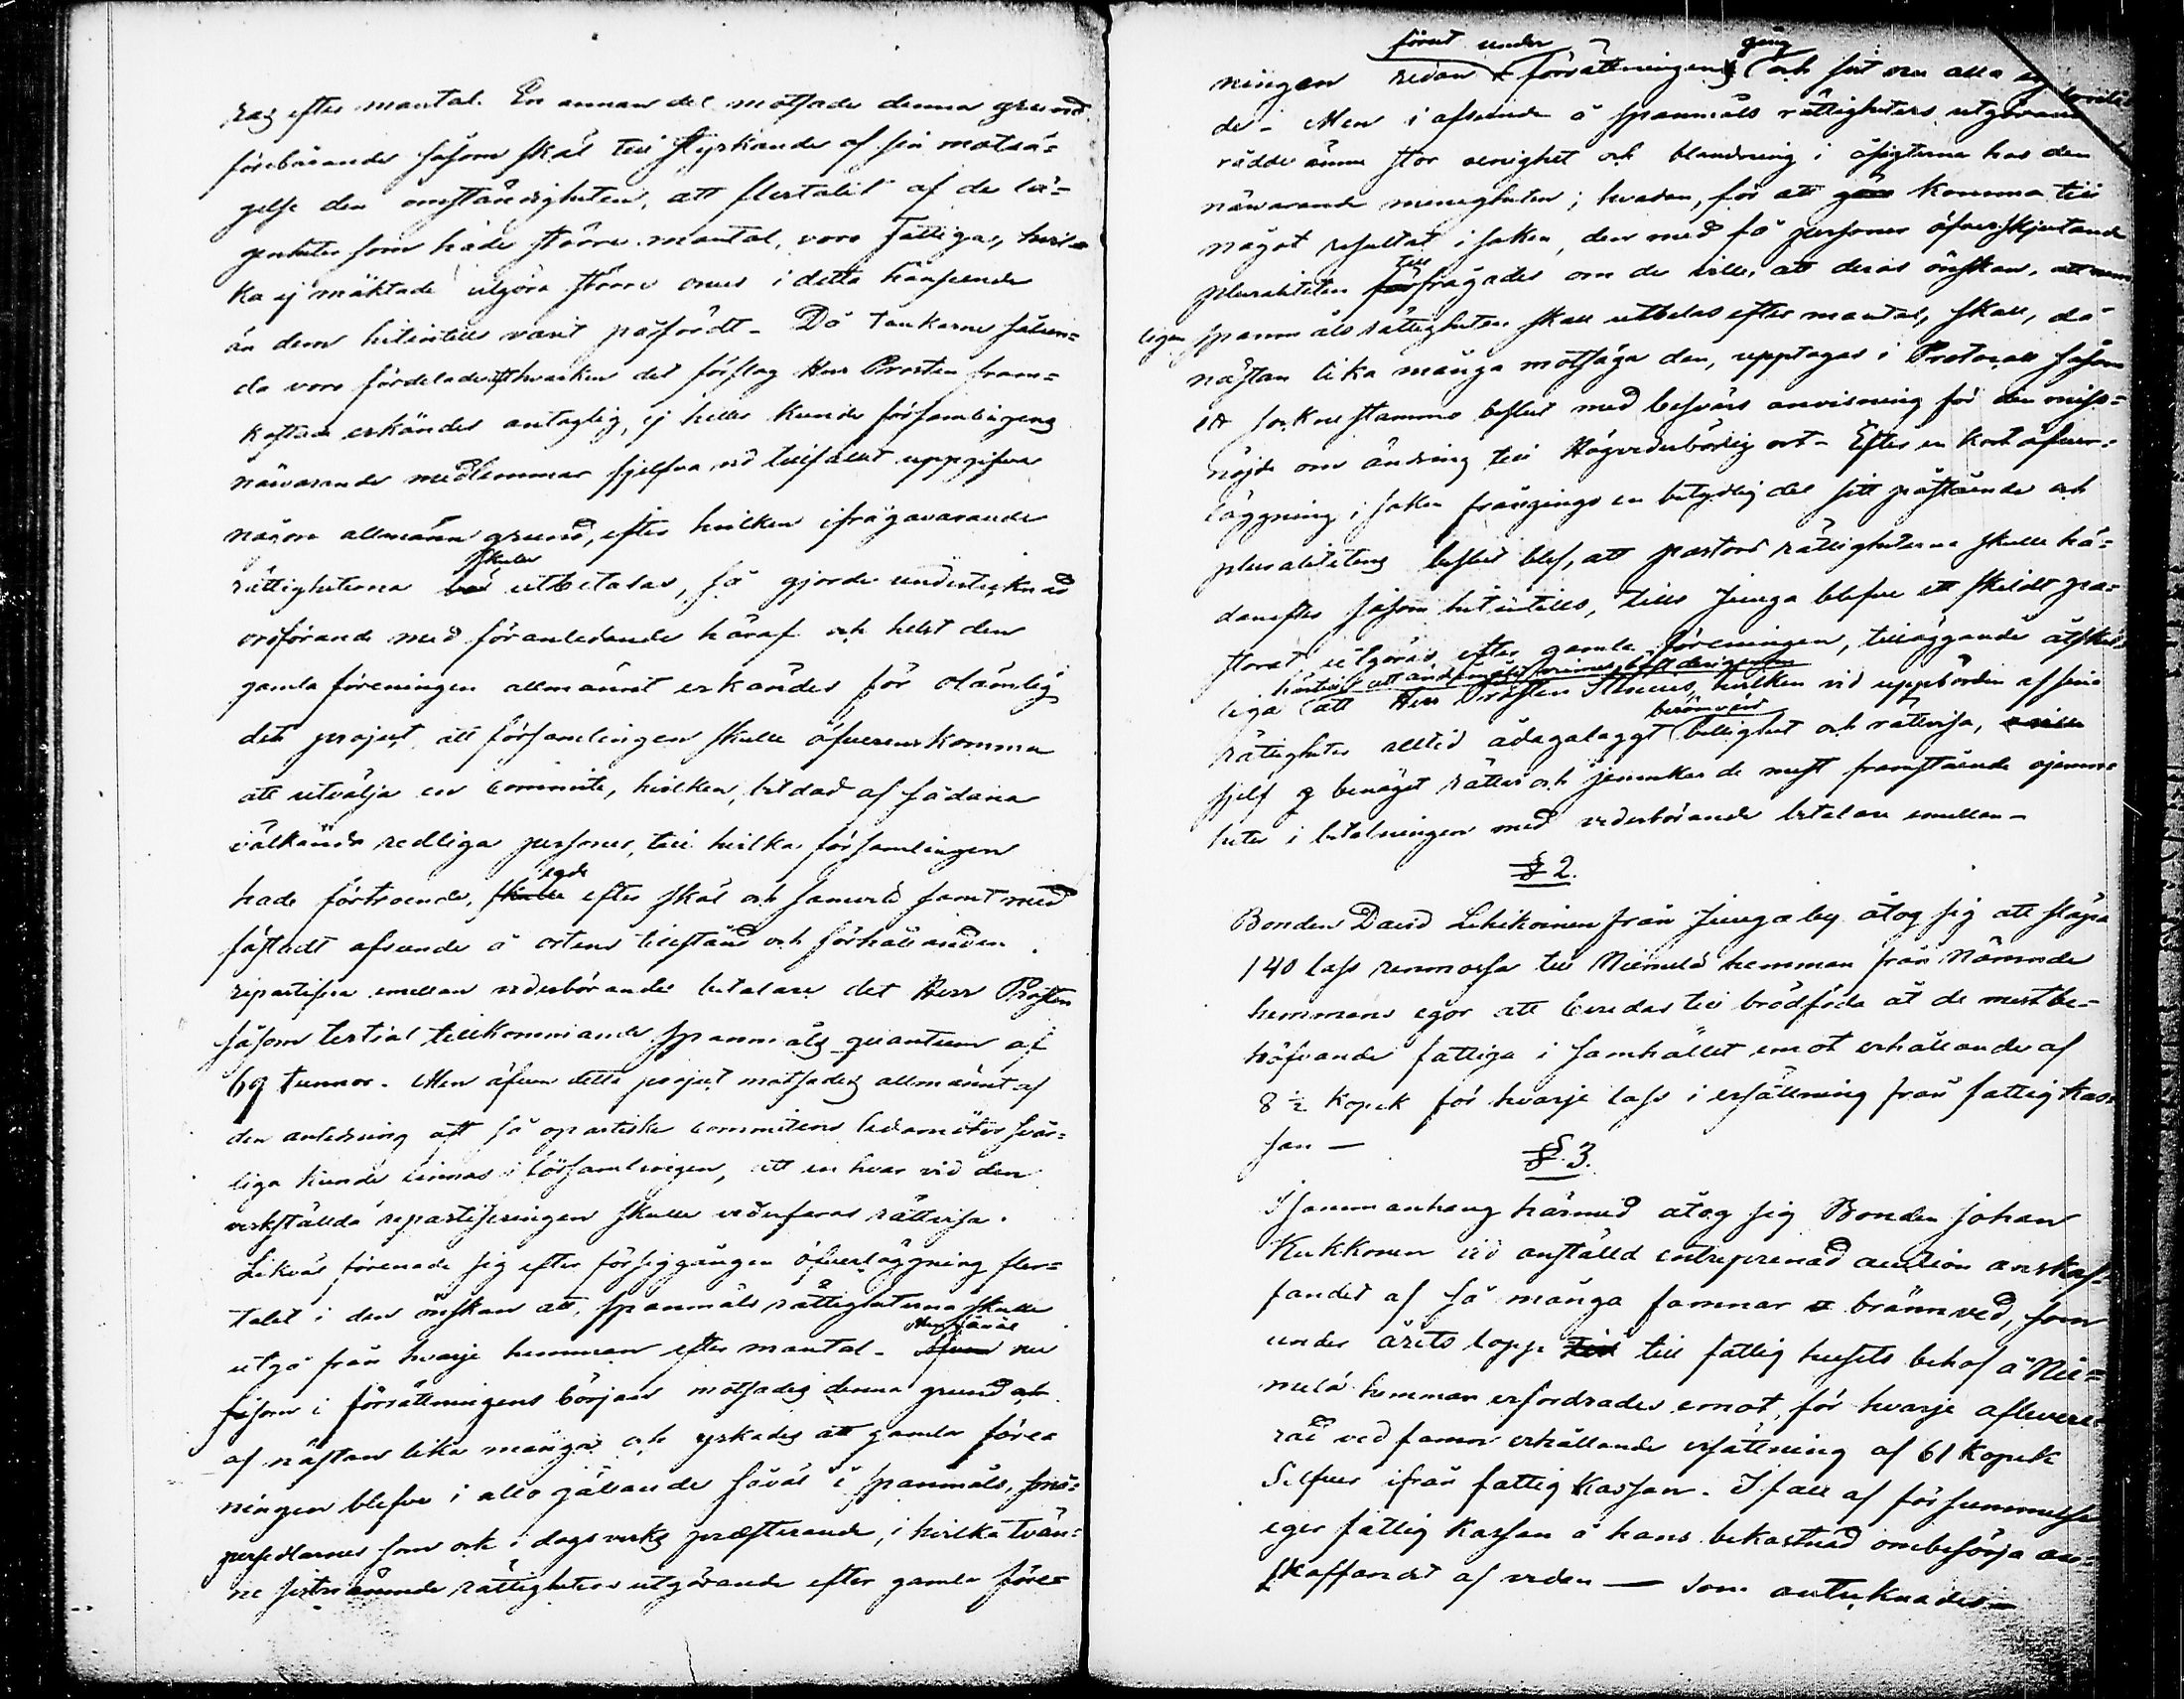 ras efter mantal. En annan del motsade denna grund
förebärande såsom skäl till styrkande af sin motsä-
gelse den omständigheten, att flertalet af de lä-
genheter som hade större mantal, voro fattigas, hvil-
ka ej mäktade utgöra större onus i detta hänseende
än dem hitintills varit påfördt. Då tankarne sålun-
da voro fördelade hvarken det förslag Herr Prosten fram-
kastade erkändes antaglig, ej heller kunde församlingens
närvarande medlemmar sjelfva vid tillfället uppgifva
någon allmänn grund, efter hvilken ifrågavarande
skulle
rättigheterna utbetalas, så gjorde undertecknad
ordförande med föranledande häraf och helst den
gamla föreningen allmännt erkändes för olämplig
det project, att församlingen skulle öfverenskomma
att utvälja en committé, hvilken, bildad af sådana
välkända redliga personer, till hvilka församlingen
egde
hade förtroende, skulle efter skäl och samvete samt med
fästadt afseende å ortens tillstånd och förhållanden
repartisera emellan vederbörande betalare det Herr Prosten
såsom tertial tillkommande spannmåls quantum af
69 tunnor. Men äfven detta project motsades allmännt af
den anledning att så opartiske committens ledamöter svår-
liga kunde finnas i församlingen, att en hvar vid den
verkställda repartiseringen skulle vederfaras rättvisa.
Likväl förenade sig efter försiggången öfverläggning fler-
talet i den önskan att, spanmåls rättigheterna skulle
utgå från hvarje hemman efter mantal. nu
såsom i förrättningens början motsades denna grund och
af nästan lika många och yrkades att gamla före-
ningen blefve i allo gällande såväl i spanmåls, små-
persedlarnes som ock i dagsverks præsterande, i hvilka tvän-
ne sistnämnde rättigheters utgörande efter gamla före-
förut under gång
ningen redan förrättningens och sist nu alla
de. Men i afseende å spanmåls rättigheters utgörande
rådde ännu stor oenighet och blandning i åsigterna hos den
närvarande menigheten; hvadan, för att komma till
något resultat i saken, den med få personer öfverskjutande
till
pluraliteten frågades om de ville, att deras önskan, att nem-
ligen spanmåls rättigheten skall utbetalas efter mantal, skall, då
nästan lika många motsäga den, upptagas i Protocoll såsom
ett sockenstämmo beslut med besvärs anvisning för den miss-
nöjde om ändring till Högvederbörlig ort. Efter en kort öfver-
läggning i saken frångings en betydlig del sitt påstående och
pluralitetens beslut blef, att pastors rättigheterna skulle hä-
danefter såsom hitintills, tills Jiuga blefve ett skildt pa-
storat utgöras efter gamla föreningen, tilläggande åtskil-
liga att Herr Prosten hvilken vid uppbörden af sina
berömvärd
rättigheter alltid ådagalaggt billighet och rättvisa,
sjelf benäget rättar och jemnkar de mest framstående ojemn-
heter i betalningen med vederbörande betalare emellan.
§ 2.
Bonden David Lehikoinen från Jiuga by åtog sig att släpa
140 lass renmossa till Niemelä hemman från nämnde
hemmans egor att beredas till brödföda åt de mest be-
höfvande fattiga i samhället emot erhållande af
8 ½ kopek för hvarje lass i ersättning från fattig kas-
san —
§. 3.
I sammanhang härmed åtog sig Bonden Johan
Kukkonen vid anställd entreprenad auction anskaf-
fandet af så många famnar brännved, som
under årets lopp till fattig husets behof å Nie-
melä hemman erfordrades emot, för hvarje aflevere-
rad ved famn erhållande ersättning af 61 kopek
Silfver ifrån fattig kassan. I fall af försummelse
eger fattig kassan å hans bekostnad ombesörja an-
skaffandet af veden — Som antecknades —